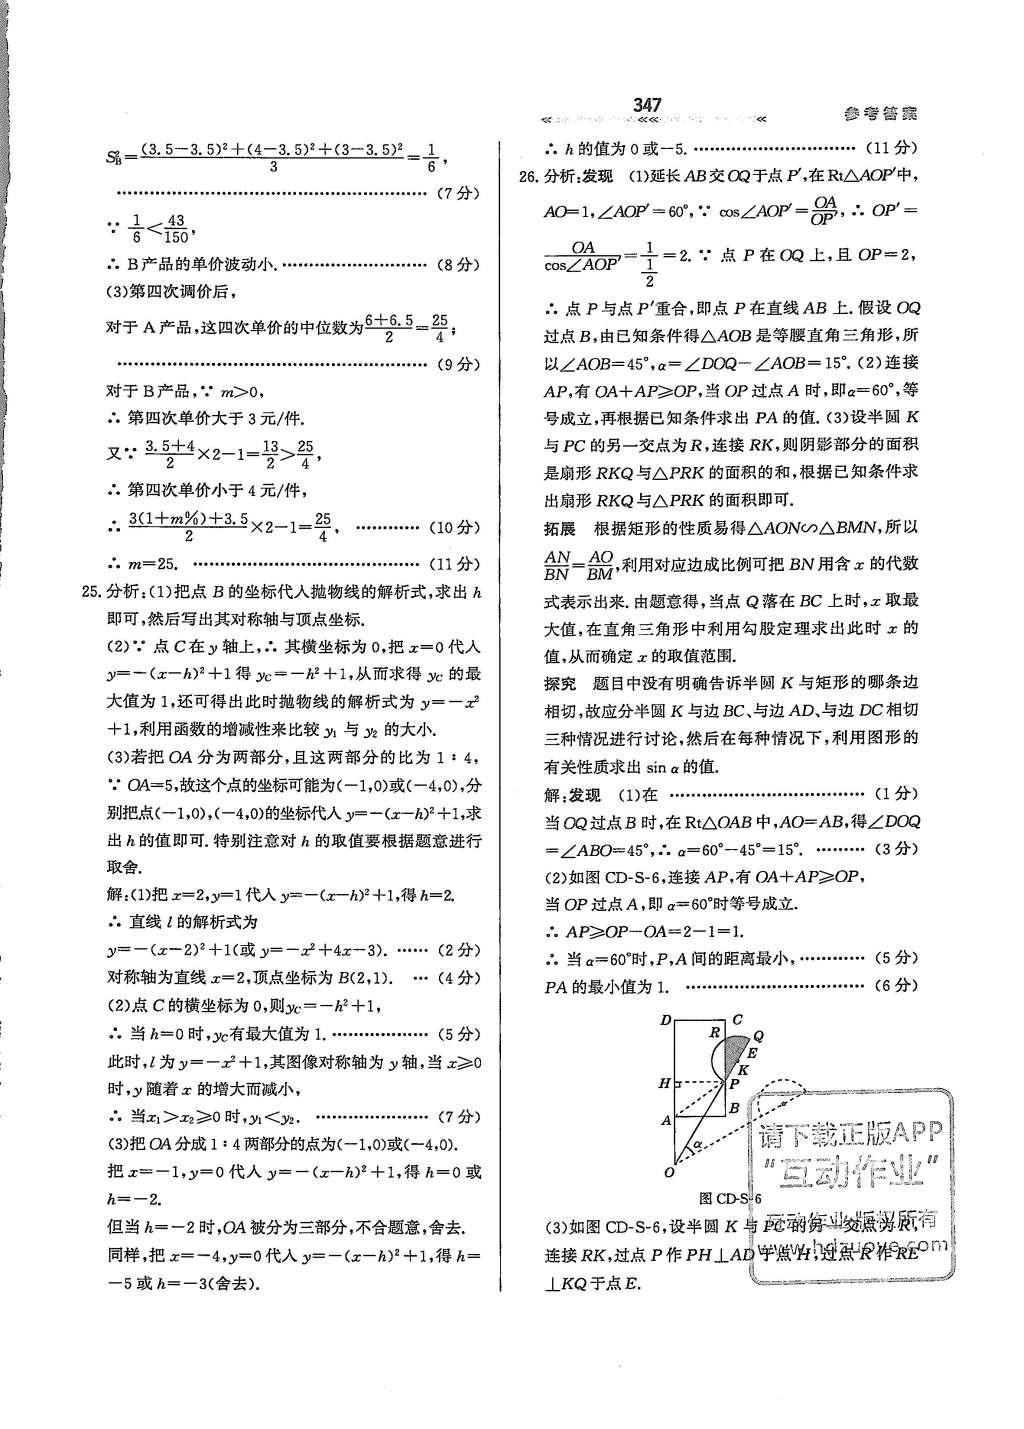 347
参考答案
S²B=(3.5−3.5)²+(4−3.5)²+(3−3.5)²/3=1/6,
……(7分)
∵1/6<43/150,
∴B产品的单价波动小.……(8分)
(3)第四次调价后,
对于A产品,这四次单价的中位数为6+6.5/2=25/4;
……(9分)
对于B产品,∵m>0,
∴第四次单价大于3元/件.
又∵3.5+4/2×2−1=13/2>25/4,
∴第四次单价小于4元/件,
∴3(1+m%)+3.5/2×2−1=25/4,……(10分)
∴m=25.……(11分)
25.分析:(1)把点B的坐标代入抛物线的解析式,求出h
即可,然后写出其对称轴与顶点坐标.
(2)∵点C在y轴上,∴其横坐标为0,把x=0代入
y=−(x−h)²+1得yC=−h²+1,从而求得yC的最
大值为1,还可得出此时抛物线的解析式为y=−x²
+1,利用函数的增减性来比较y₁与y₂的大小.
(3)若把OA分为两部分,且这两部分的比为1∶4,
∵OA=5,故这个点的坐标可能为(−1,0)或(−4,0),分
别把点(−1,0),(−4,0)的坐标代入y=−(x−h)²+1,求
出h的值即可.特别注意对h的取值要根据题意进行
取舍.
解:(1)把x=2,y=1代入y=−(x−h)²+1,得h=2.
∴直线l的解析式为
y=−(x−2)²+1(或y=−x²+4x−3).……(2分)
对称轴为直线x=2,顶点坐标为B(2,1).…(4分)
(2)点C的横坐标为0,则yC=−h²+1,
∴当h=0时,yC有最大值为1.……(5分)
此时,l为y=−x²+1,其图像对称轴为y轴,当x⩾0
时,y随着x的增大而减小,
∴当x₁>x₂⩾0时,y₁<y₂.……(7分)
(3)把OA分成1∶4两部分的点为(−1,0)或(−4,0).
把x=−1,y=0代入y=−(x−h)²+1,得h=0或
h=−2.
但当h=−2时,OA被分为三部分,不合题意,舍去.
同样,把x=−4,y=0代入y=−(x−h)²+1,得h=
−5或h=−3(舍去).
∴h的值为0或−5.……(11分)
26.分析:发现 (1)延长AB交OQ于点P′,在Rt△AOP′中,
AO=1,∠AOP′=60°,∵cos∠AOP′=OA/OP′,∴OP′=
OA/cos∠AOP′=1/(1/2)=2.∵点P在OQ上,且OP=2,
∴点P与点P′重合,即点P在直线AB上.假设OQ
过点B,由已知条件得△AOB是等腰直角三角形,所
以∠AOB=45°,α=∠DOQ−∠AOB=15°.(2)连接
AP,有OA+AP⩾OP,当OP过点A时,即α=60°,等
号成立,再根据已知条件求出PA的值.(3)设半圆K
与PC的另一交点为R,连接RK,则阴影部分的面积
是扇形RKQ与△PRK的面积的和,根据已知条件求
出扇形RKQ与△PRK的面积即可.
拓展 根据矩形的性质易得△AON∽△BMN,所以
AN/BN=AO/BM,利用对应边成比例可把BN用含x的代数
式表示出来.由题意得,当点Q落在BC上时,x取最
大值,在直角三角形中利用勾股定理求出此时x的
值,从而确定x的取值范围.
探究 题目中没有明确告诉半圆K与矩形的哪条边
相切,故应分半圆K与边BC、与边AD、与边DC相切
三种情况进行讨论,然后在每种情况下,利用图形的
有关性质求出sin α的值.
解:发现 (1)在……(1分)
当OQ过点B时,在Rt△OAB中,AO=AB,得∠DOQ
=∠ABO=45°,∴α=60°−45°=15°.……(3分)
(2)如图CD-S-6,连接AP,有OA+AP⩾OP,
当OP过点A,即α=60°时等号成立.
∴AP⩾OP−OA=2−1=1.
∴当α=60°时,P,A间的距离最小,……(5分)
PA的最小值为1.……(6分)
D
C
R
Q
E
K
H
P
B
A
α
α
O
图CD-S-6
(3)如图CD-S-6,设半圆K与PC的另一交点为R,
连接RK,过点P作PH⊥AD于点H,过点R作RE
⊥KQ于点E.
请下载正版APP
“互动作业”
互动作业 版权所有
www.hdzuoye.com